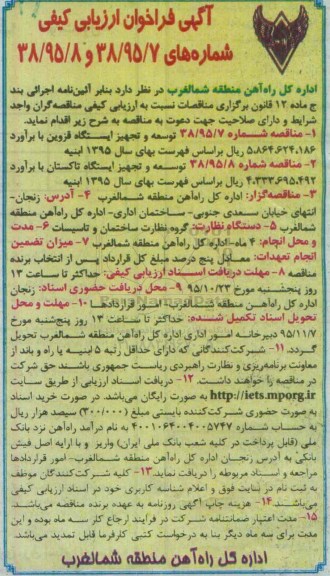 آگهی فراخوان ارزیابی کیفی
شماره‌های ۳۸/۹۵/۷ و ۳۸/۹۵/۸
اداره کل راه‌آهن منطقه شمالغرب در نظر دارد بنابر آئین‌نامه اجرائی بند
ج ماده ۱۲ قانون برگزاری مناقصات نسبت به ارزیابی کیفی مناقصه‌گران واجد
شرایط و دارای صلاحیت جهت دعوت به مناقصه به شرح زیر اقدام نماید.
۱- مناقصه شماره ۳۸/۹۵/۷ توسعه و تجهیز ایستگاه قزوین با برآورد
۵.۸۶۴.۶۲۴.۱۸۶ ریال براساس فهرست بهای سال ۱۳۹۵ ابنیه
۲- مناقصه شماره ۳۸/۹۵/۸ توسعه و تجهیز ایستگاه تاکستان با برآورد
۴.۳۳۳.۶۹۵.۴۹۲ ریال براساس فهرست بهای سال ۱۳۹۵ ابنیه
۳- مناقصه‌گزار: اداره کل راه‌آهن منطقه شمالغرب ۴- آدرس: زنجان-
انتهای خیابان سعدی جنوبی- ساختمان اداری- اداره کل راه‌آهن منطقه
شمالغرب ۵- دستگاه نظارت: گروه نظارت ساختمان و تاسیسات ۶- مدت
و محل انجام: ۴ ماه- اداره کل راه‌آهن منطقه شمالغرب ۷- میزان تضمین
انجام تعهدات: معادل پنج درصد مبلغ کل قرارداد پس از انتخاب برنده
مناقصه ۸- مهلت دریافت اسناد ارزیابی کیفی: حداکثر تا ساعت ۱۳
روز پنجشنبه مورخ ۹۵/۱۰/۲۳ ۹- محل دریافت حضوری اسناد: زنجان
اداره کل راه‌آهن منطقه شمالغرب- امور قراردادها ۱۰- مهلت و محل
تحویل اسناد تکمیل شده: حداکثر تا ساعت ۱۳ روز پنج‌شنبه مورخ
۹۵/۱۱/۷ دبیرخانه امور اداری اداره کل راه‌آهن منطقه شمالغرب تحویل
گردد. ۱۱- شرکت‌کنندگانی که دارای حداقل رتبه ۵ ابنیه یا راه و باند از
معاونت برنامه‌ریزی و نظارت راهبردی ریاست جمهوری باشند حق شرکت
در مناقصه را خواهند داشت. ۱۲- دریافت اسناد ارزیابی از طریق سایت
http://iets.mporg.ir به صورت رایگان می‌باشد. در صورت خرید اسناد
به صورت حضوری شرکت‌کننده بایستی مبلغ (۳۰۰/۰۰۰) سیصد هزار ریال
به حساب شماره ۴۰۰۱۰۶۴۰۰۴۰۰۵۷۴۷ به نام درآمد راه‌آهن نزد بانک
ملی (قابل پرداخت در کلیه شعب بانک ملی ایران) واریز و با ارایه اصل فیش
بانکی به آدرس زنجان اداره کل راه‌آهن منطقه شمالغرب- امور قراردادها
مراجعه و اسناد مربوطه را دریافت نماید. ۱۳- کلیه شرکت‌کنندگان موظف
به ثبت نام در سایت فوق و اعلام شناسه کاربری خود در اسناد ارزیابی کیفی
می‌باشند. ۱۴- هزینه چاپ آگهی روزنامه به عهده برنده مناقصه می‌باشد.
۱۵- مدت اعتبار ضمانتنامه شرکت در فرآیند ارجاع کار سه ماه بوده و این
مدت برای سه ماه دیگر بنا به درخواست کتبی کارفرما قابل تمدید می‌باشد.
اداره کل راه‌آهن منطقه شمالغرب